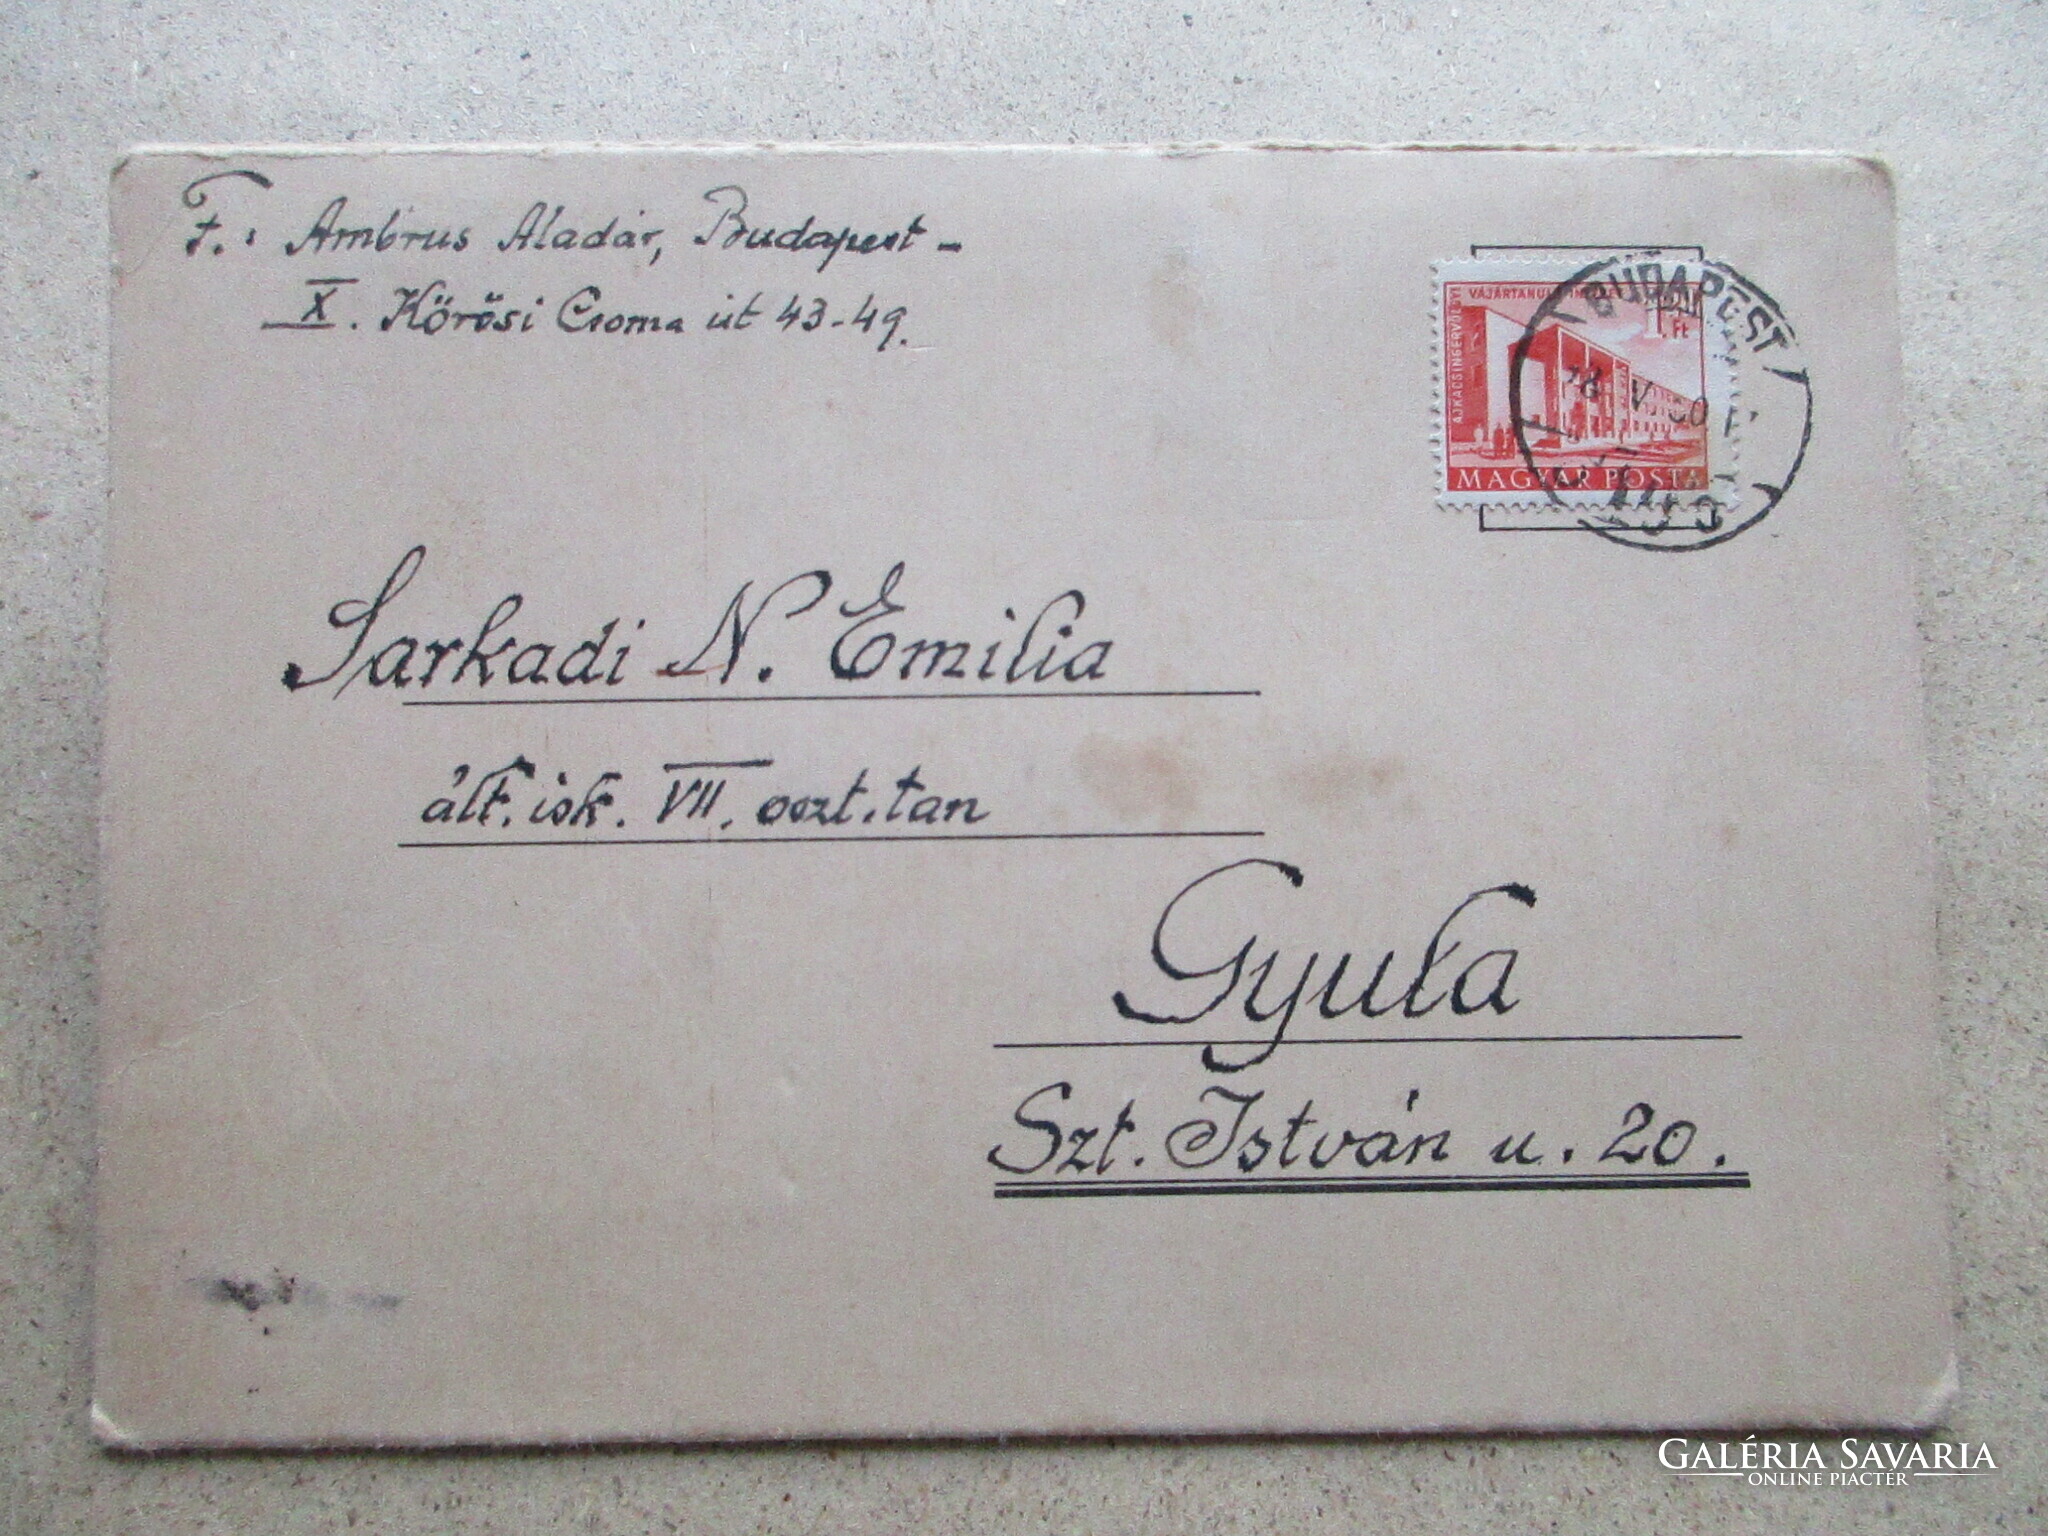 F.: Ambrus Aladár, Budapest -
X. Kőrösi Csoma út 43-49.
AJKACSINGERVÖLGYI
VÁJÁRTANULÓ
1. Ft
MAGYAR POSTA
BUDAPEST
18 V. 60
Sarkadi N. Emilia
ált. isk. VII. oszt. tan
Gyula
Szt. István u. 20.
GALÉRIA SAVARIA
ONLINE PIACTÉR